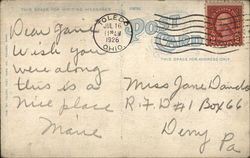 THIS SPACE FOR WRITING MESSAGES
TOLEDO
JUL 16
1926
OHIO
Post Card
THIS SPACE FOR ADDRESS ONLY
Dear Jane
Wish you
were along
this is a
nice place
Marie
Miss Jane Daniels
R.F.D #1 Box 66
Derry
Pa